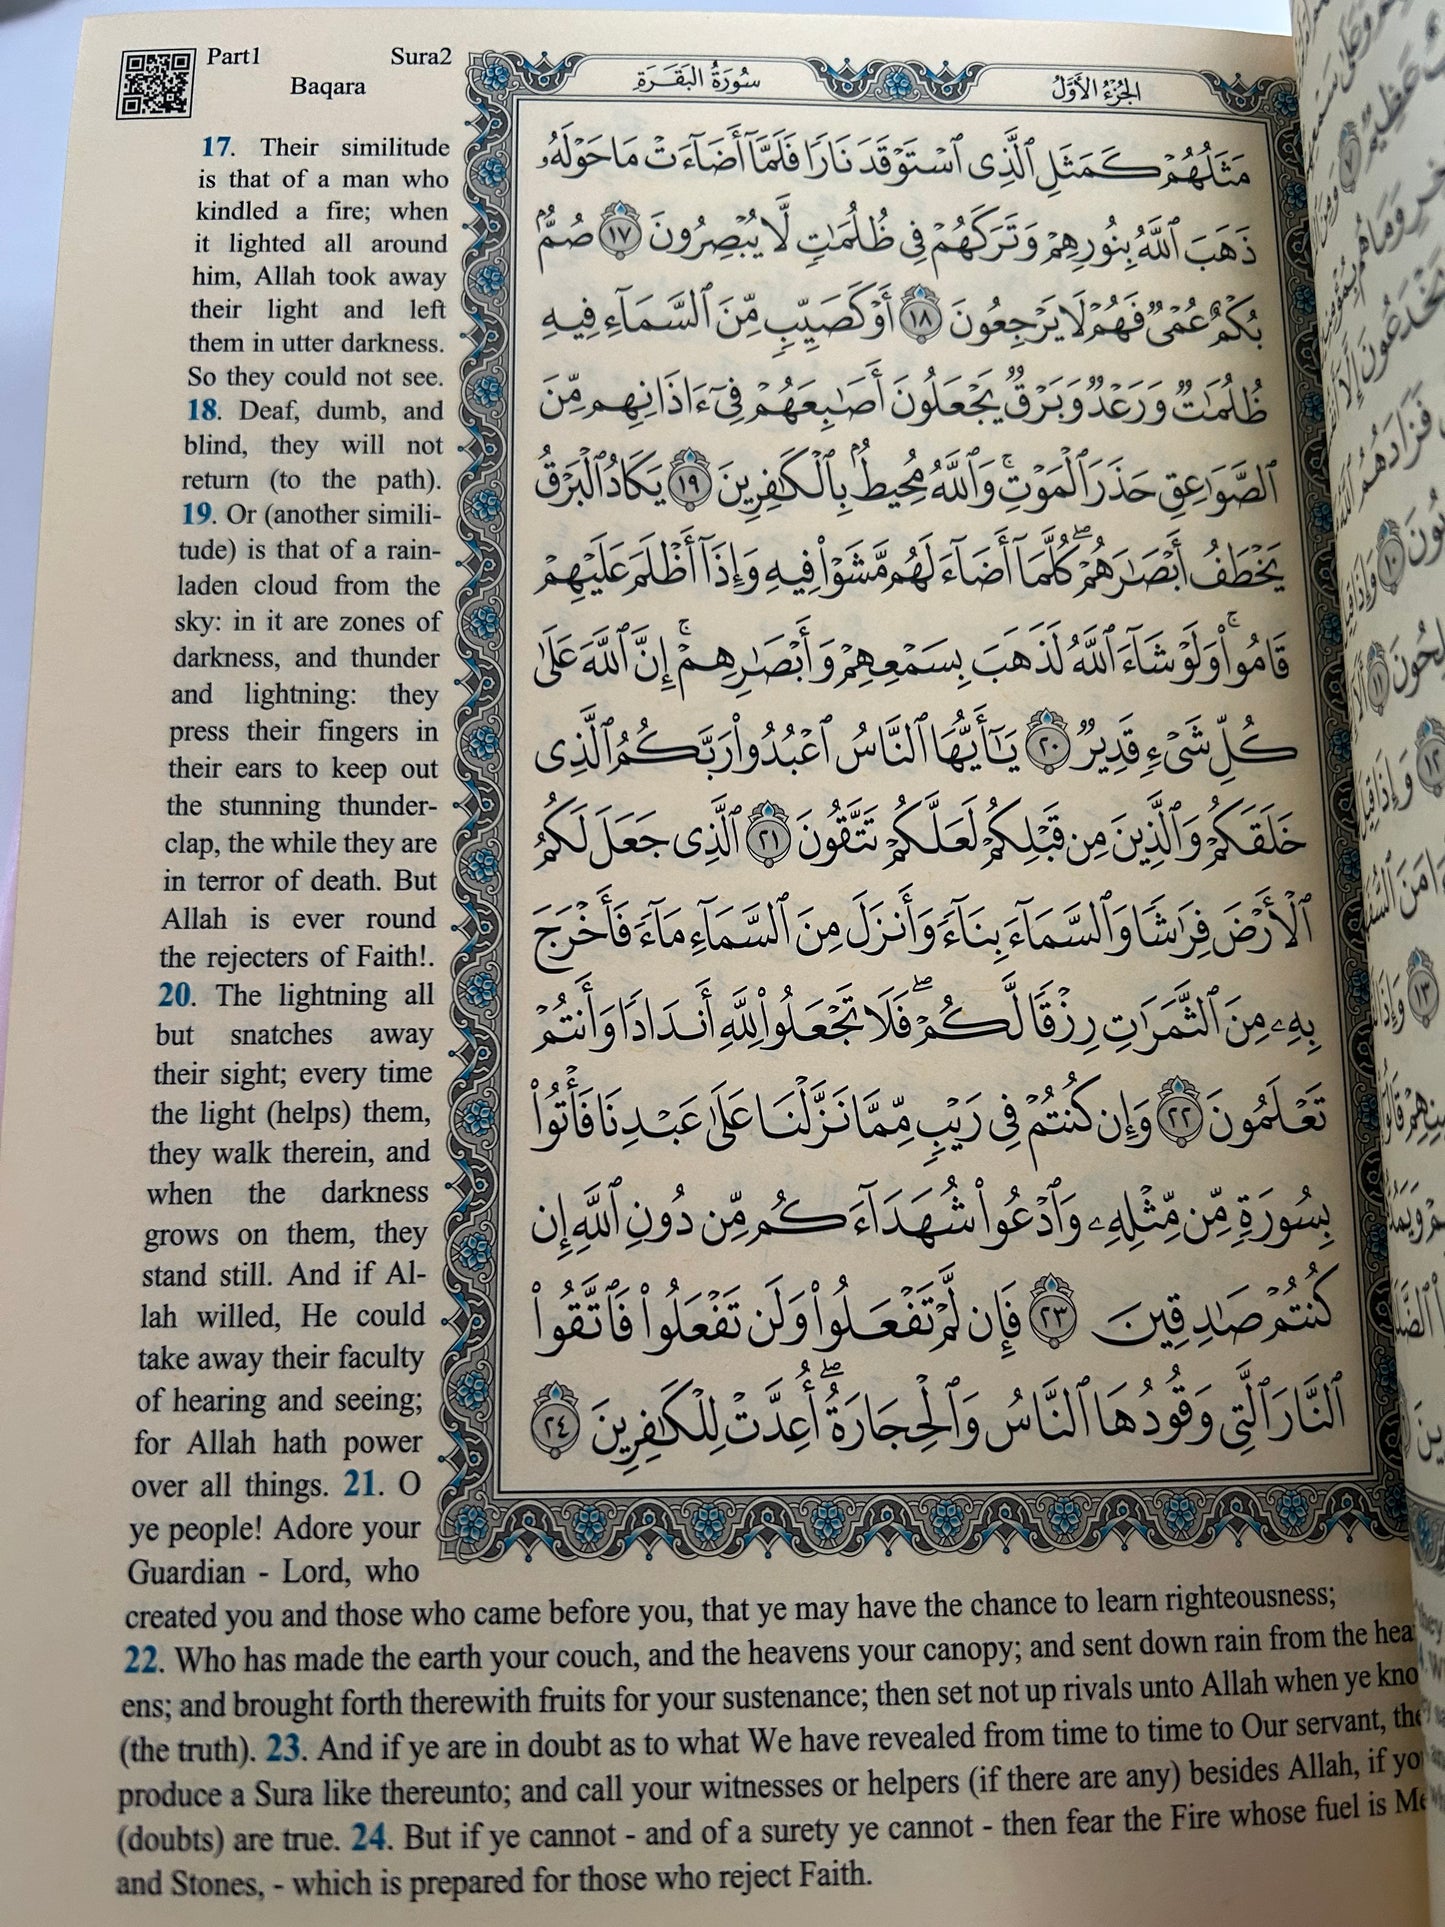 Part1 Sura2
Baqara
سُورَةُ البَقَرَة
الجُزْءُ الأَوَّل
17. Their similitude
is that of a man who
kindled a fire; when
it lighted all around
him, Allah took away
their light and left
them in utter darkness.
So they could not see.
18. Deaf, dumb, and
blind, they will not
return (to the path).
19. Or (another simili-
tude) is that of a rain-
laden cloud from the
sky: in it are zones of
darkness, and thunder
and lightning: they
press their fingers in
their ears to keep out
the stunning thunder-
clap, the while they are
in terror of death. But
Allah is ever round
the rejecters of Faith!.
20. The lightning all
but snatches away
their sight; every time
the light (helps) them,
they walk therein, and
when the darkness
grows on them, they
stand still. And if Al-
lah willed, He could
take away their faculty
of hearing and seeing;
for Allah hath power
over all things. 21. O
ye people! Adore your
Guardian - Lord, who
created you and those who came before you, that ye may have the chance to learn righteousness;
22. Who has made the earth your couch, and the heavens your canopy; and sent down rain from the hea
ens; and brought forth therewith fruits for your sustenance; then set not up rivals unto Allah when ye kno
(the truth). 23. And if ye are in doubt as to what We have revealed from time to time to Our servant, the
produce a Sura like thereunto; and call your witnesses or helpers (if there are any) besides Allah, if yo
(doubts) are true. 24. But if ye cannot - and of a surety ye cannot - then fear the Fire whose fuel is Me
and Stones, - which is prepared for those who reject Faith.
مَثَلُهُمْ كَمَثَلِ ٱلَّذِى ٱسْتَوْقَدَ نَارًا فَلَمَّآ أَضَآءَتْ مَا حَوْلَهُۥ
ذَهَبَ ٱللَّهُ بِنُورِهِمْ وَتَرَكَهُمْ فِى ظُلُمَٰتٍ لَّا يُبْصِرُونَ ١٧ صُمٌّۢ
بُكْمٌ عُمْىٌ فَهُمْ لَا يَرْجِعُونَ ١٨ أَوْ كَصَيِّبٍ مِّنَ ٱلسَّمَآءِ فِيهِ
ظُلُمَٰتٌ وَرَعْدٌ وَبَرْقٌ يَجْعَلُونَ أَصَٰبِعَهُمْ فِىٓ ءَاذَانِهِم مِّنَ
ٱلصَّوَٰعِقِ حَذَرَ ٱلْمَوْتِ ۚ وَٱللَّهُ مُحِيطٌۢ بِٱلْكَٰفِرِينَ ١٩ يَكَادُ ٱلْبَرْقُ
يَخْطَفُ أَبْصَٰرَهُمْ ۖ كُلَّمَآ أَضَآءَ لَهُم مَّشَوْا۟ فِيهِ وَإِذَآ أَظْلَمَ عَلَيْهِمْ
قَامُوا۟ ۚ وَلَوْ شَآءَ ٱللَّهُ لَذَهَبَ بِسَمْعِهِمْ وَأَبْصَٰرِهِمْ ۚ إِنَّ ٱللَّهَ عَلَىٰ
كُلِّ شَىْءٍ قَدِيرٌ ٢٠ يَٰٓأَيُّهَا ٱلنَّاسُ ٱعْبُدُوا۟ رَبَّكُمُ ٱلَّذِى
خَلَقَكُمْ وَٱلَّذِينَ مِن قَبْلِكُمْ لَعَلَّكُمْ تَتَّقُونَ ٢١ ٱلَّذِى جَعَلَ لَكُمُ
ٱلْأَرْضَ فِرَٰشًا وَٱلسَّمَآءَ بِنَآءً وَأَنزَلَ مِنَ ٱلسَّمَآءِ مَآءً فَأَخْرَجَ
بِهِۦ مِنَ ٱلثَّمَرَٰتِ رِزْقًا لَّكُمْ ۖ فَلَا تَجْعَلُوا۟ لِلَّهِ أَندَادًا وَأَنتُمْ
تَعْلَمُونَ ٢٢ وَإِن كُنتُمْ فِى رَيْبٍ مِّمَّا نَزَّلْنَا عَلَىٰ عَبْدِنَا فَأْتُوا۟
بِسُورَةٍ مِّن مِّثْلِهِۦ وَٱدْعُوا۟ شُهَدَآءَكُم مِّن دُونِ ٱللَّهِ إِن
كُنتُمْ صَٰدِقِينَ ٢٣ فَإِن لَّمْ تَفْعَلُوا۟ وَلَن تَفْعَلُوا۟ فَٱتَّقُوا۟
ٱلنَّارَ ٱلَّتِى وَقُودُهَا ٱلنَّاسُ وَٱلْحِجَارَةُ ۖ أُعِدَّتْ لِلْكَٰفِرِينَ ٢٤